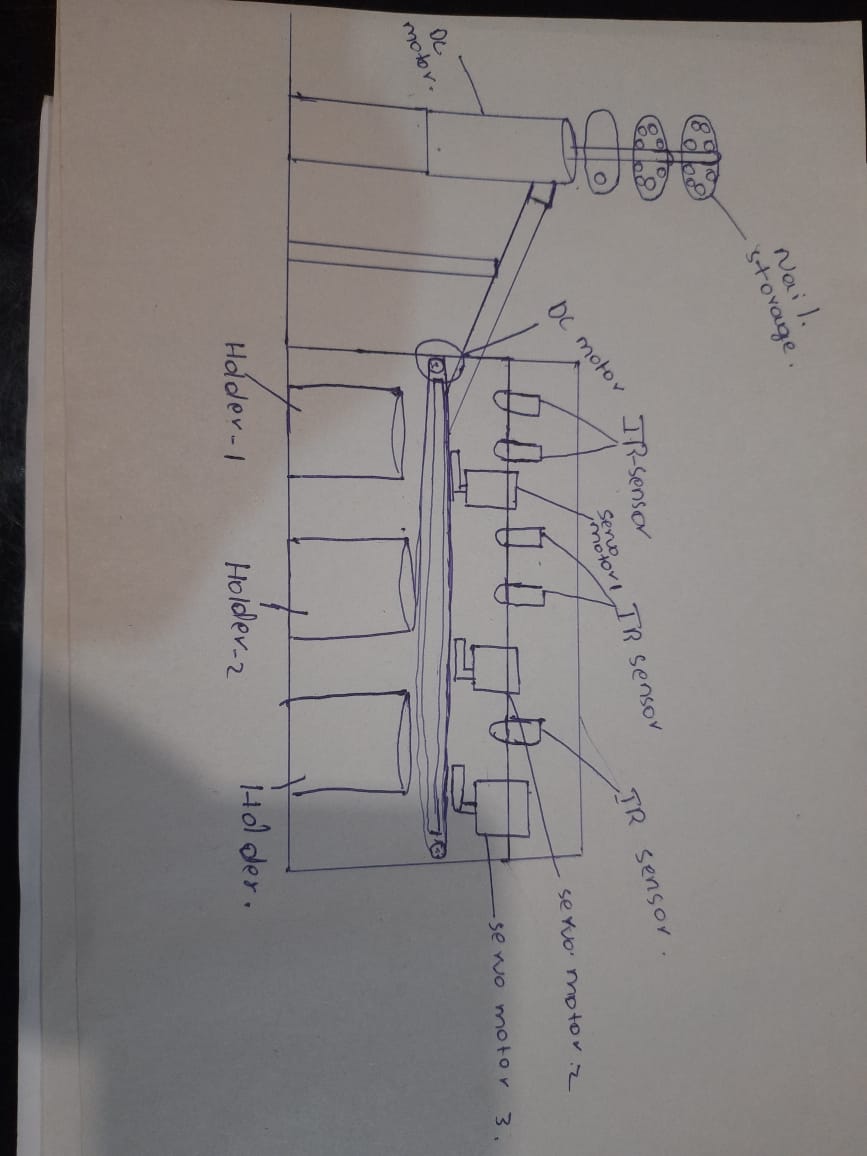 DC
motor.
Nail.
storage.
DC motor
IR-sensor
servo
motor1
IR sensor
IR sensor.
servo motor 2
servo motor 3.
Holder-1
Holder-2
Holder.